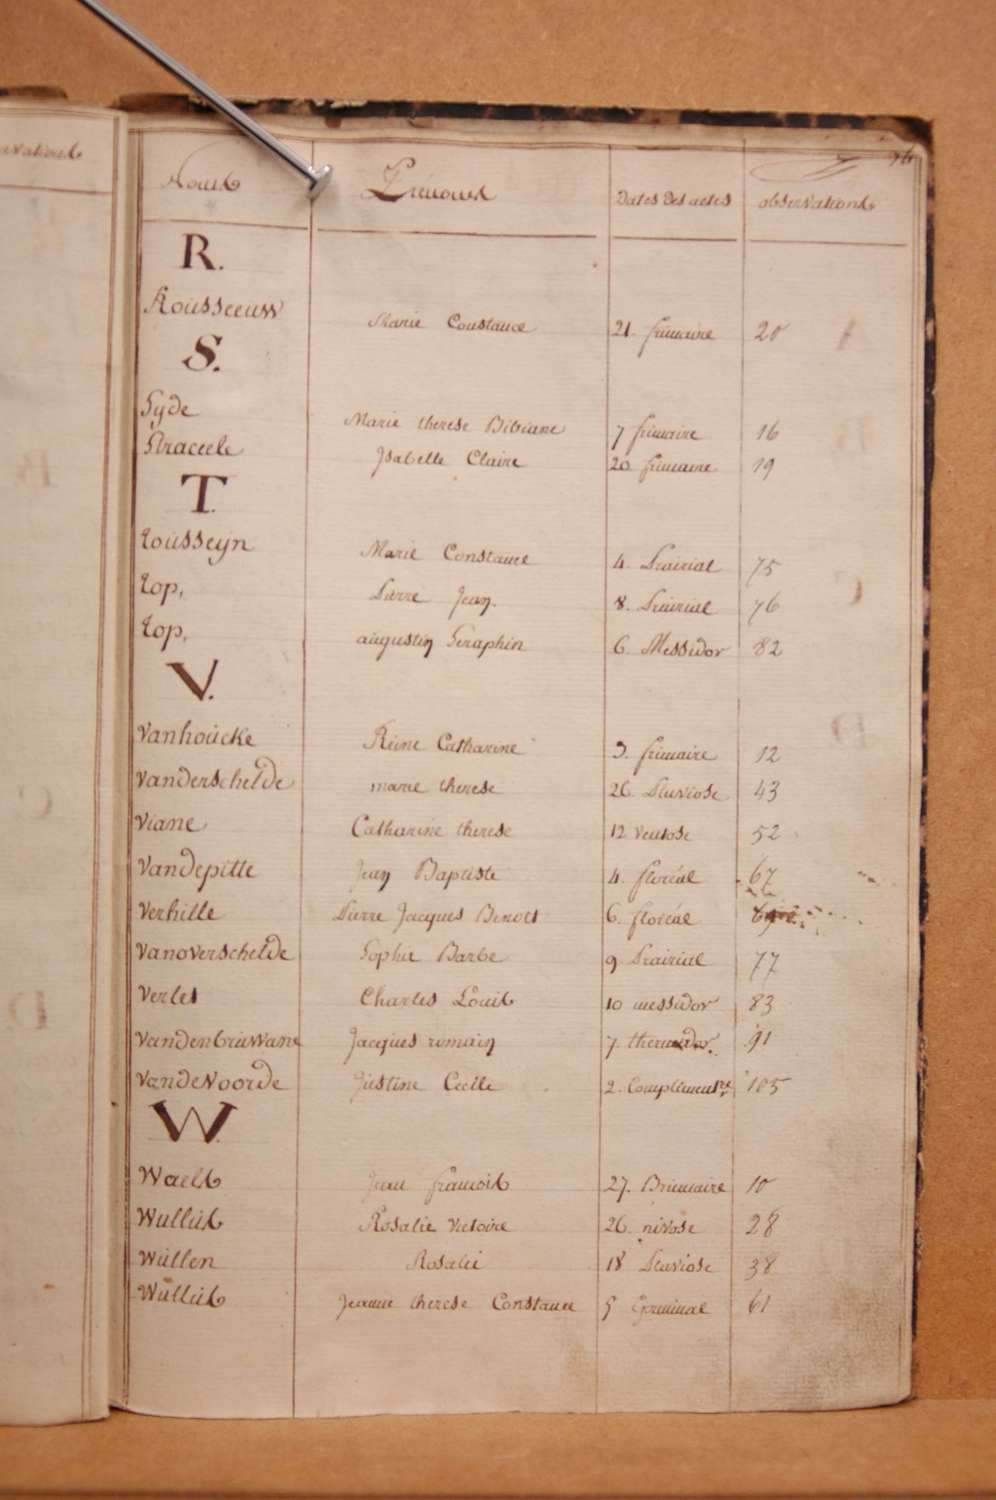 Noms Prénoms Dates des actes observations
R.
Rousseeuw Marie Constance 21. frimaire 20
S.
Syde Marie therese Bibiane 7 frimaire 16
Straceele Isabelle Claire 20 frimaire 19
T.
tousseyn Marie Constance 4. Prairial 75
top, Pierre Jean. 8. Prairial 76
top, augustin Seraphin 6. Messidor 82
V.
vanhoucke Reine Catharine 3. frimaire 12
vanderschelde marie therese 26. Pluviose 43
viane Catharine therese 12 ventose 52
vandepitte Jean Baptiste 4. floréal 67
verhille Pierre Jacques Benoit 6. floréal
vanoverschelde Sophie Barbe 9 Prairial 77
verles Charles Louis 10 messidor 83
vandenbruwane Jacques romain 7. thermidor. 91
vandevoorde Justine Cecile 2. Complimentre 105
W.
Waels Jean francois 27. Brumaire 10
Wullus Rosalie victoire 26. nivose 28
Wullen Rosalie 18 Pluviose 38
Wullus Jeanne therese Constance 5 Germinal 61